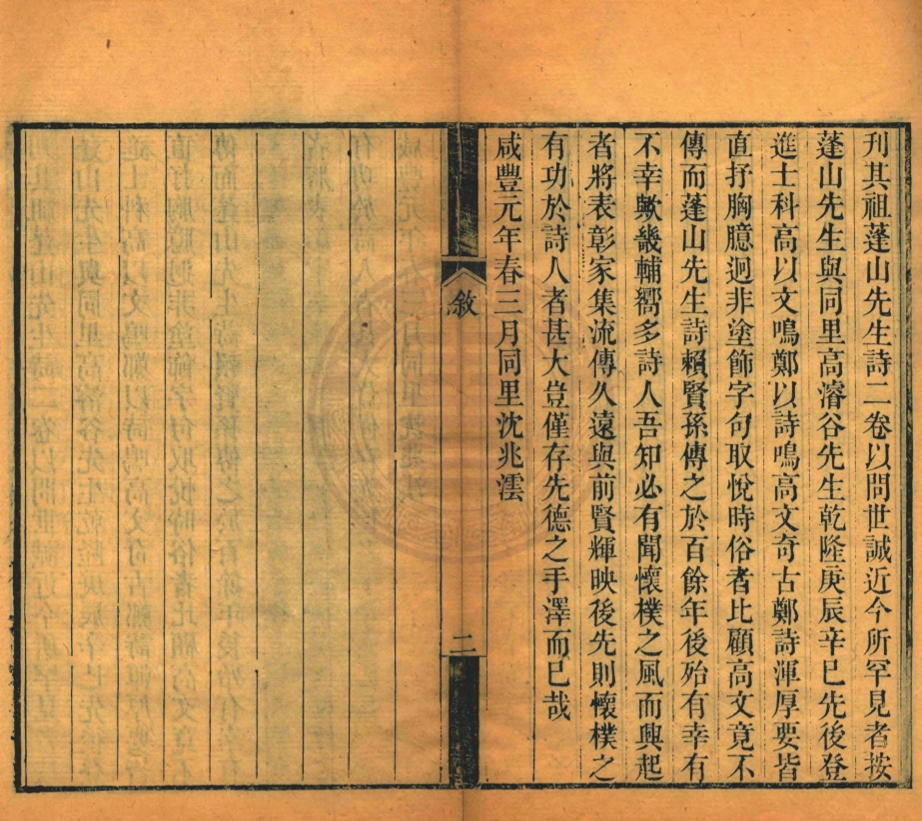 刋其祖蓬山先生詩二卷以問世誠近今所罕見者按
蓬山先生與同里高濬谷先生乾隆庚辰辛巳先後登
進士科高以文鳴鄭以詩鳴高文奇古鄭詩渾厚要皆
直抒胸臆迥非塗飾字句取悅時俗者比顧高文竟不
傳而蓬山先生詩賴賢孫傳之於百餘年後殆有幸有
不幸歟畿輔嚮多詩人吾知必有聞懷樸之風而興起
者將表彰家集流傳久遠與前賢輝映後先則懷樸之
有功於詩人者甚大豈僅存先德之手澤而已哉
咸豐元年春三月同里沈兆澐
敘
二